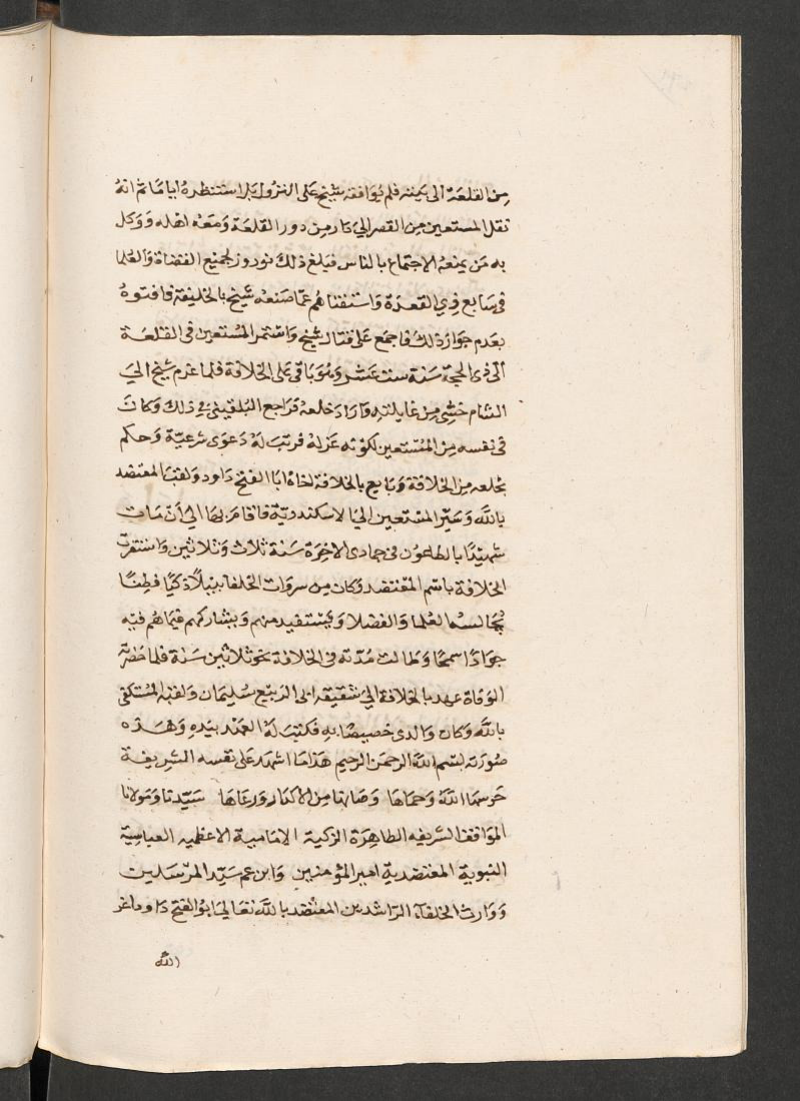 من القلعة الى بيته فلم يوافقه شيخ على النزول بل استنظره اياما ثم انه
نقل المستعين من القصر الي دار من دور القلعة ومعه اهله ووكل
به من يمنعه الاجتماع بالناس فبلغ ذلك نوروز لجميع القضاة والعلما
في سابع ذي القعدة واستفتاهم عما صنعه شيخ بالخليفة فافتوه
بعدم جواز ذلك فاجمع على قتال شيخ واستمر المستعين في القلعة
الى ذي الحجة سنة ست عشر وهو باقي على الخلافة فلما عزم شيخ الي
الشام خشي من غايلته واراد خلعه فراجع البلقيني في ذلك وكان
في نفسه من المستعين لكونه عزله فرتب له دعوى شرعية وحكم
بخلعه من الخلافة وبايع بالخلافة لخاه ابا الفتح داود ولقب المعتضد
بالله وسير المستعين الي الاسكندرية فاقام بها الي أن مات
شهيدا بالطاعون في جمادى الاخرة سنة ثلاث وثلاثين واستقرت
الخلافة باسم المعتضد وكان من سروات الخلفا نبيلا ذكيا فطنا
يجالسه العلما والفضلا ويستفيد منهم ويشاركهم فيما هم فيه
جوادا سمحا وطالت مدته في الخلافة نحو ثلاثين سنة فلما حضرته
الوفاة عهد بالخلافة الي شقيقه ابي الربيع سليمان ولقبه المستكفي
بالله وكان والدى خصيصا به فكتب له العهد بيده وهذه
صورته بسم الله الرحمن الرحيم هذا ما اشهد على نفسه الشريفة
حرسها الله وحماها وصانها من الاكدار ورعاها سيدنا ومولانا
المواقف الشريفه الطاهرة الزكية الامامية الاعظميه العباسية
النبوية المعتضدية امير المؤمنين وابن عم سيد المرسلين
ووارث الخلفآء الراشدين المعتضد بالله تعالي ابو الفتح داود اعز
الله